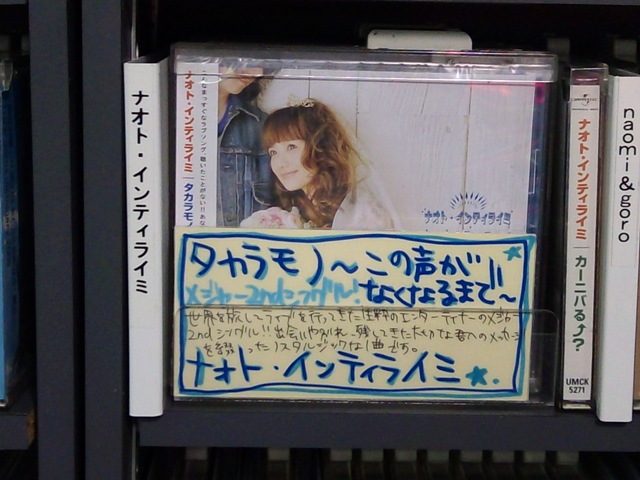 ナオト・インティライミ
こんなまっすぐなラブソング、聴いたことがない!!
ナオト・インティライミ タカラモノ
ナオト・インティライミ
タカラモノ～この声が
メジャー2ndシングル! なくなるまで～
世界を旅してライブを行ってきた
エンターテイナーのメジャー
2ndシングル!! 出会いや別れ…残してきた大切な君へのメッセージ
を綴ったノスタルジックな1曲です。
ナオト・インティライミ
ナオト・インティライミ カーニバる?
UMCK
5271
naomi & goro